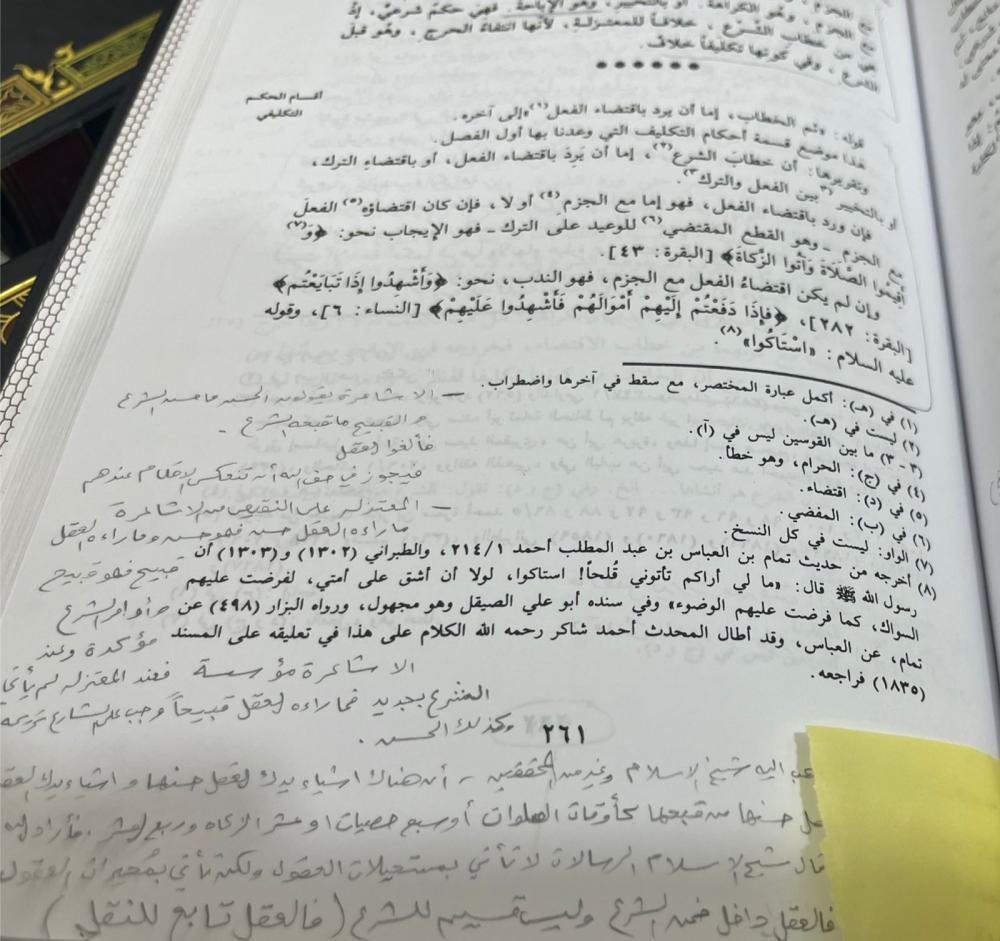 مع الجزم، وهو الكراهة. أو بالتخيير، وهو الإباحة. فهي حكم شرعي، إذ
هي من خطاب الشرع، خلافاً للمعتزلة، لأنها انتفاء الحرج، وهو قبل
الشرع، وفي كونها تكليفاً خلاف.
أقسام الحكم
التكليفي
قوله: «ثم الخطاب، إما أن يرد باقتضاء الفعل(١)» إلى آخره.
هذا موضع قسمة أحكام التكليف التي وعدنا بها أول الفصل.
وتقريرها: أن خطاب الشرع(٢)، إما أن يَرِدَ باقتضاء الفعل، أو باقتضاءِ الترك،
أو بالتخيير (٣ بين الفعل والترك ٣).
فإن ورد باقتضاء الفعل، فهو إما مع الجزم(٤) أو لا، فإن كان اقتضاؤه(٥) الفعلَ
مع الجزم - وهو القطع المقتضي(٦) للوعيد على الترك - فهو الإيجاب نحو: ﴿وَ(٧)
أَقِيمُوا الصَّلَاةَ وَآتُوا الزَّكَاةَ﴾ [البقرة: ٤٣].
وإن لم يكن اقتضاءُ الفعل مع الجزم، فهو الندب، نحو: ﴿وَأَشْهِدُوا إِذَا تَبَايَعْتُم﴾
[البقرة: ٢٨٢]، ﴿فَإِذَا دَفَعْتُمْ إِلَيْهِمْ أَمْوَالَهُمْ فَأَشْهِدُوا عَلَيْهِمْ﴾ [النساء: ٦]، وقوله
عليه السلام: «اسْتَاكُوا»(٨).
(١) في (هـ): أكمل عبارة المختصر، مع سقط في آخرها واضطراب.
(٢) ليست في (هـ).
(٣ - ٣) ما بين القوسين ليس في (أ).
(٤) في (ج): الحرام، وهو خطأ.
(٥) في (د): اقتضاء.
(٦) في (ب): المفضي.
(٧) الواو: ليست في كل النسخ.
(٨) أخرجه من حديث تمام بن العباس بن عبد المطلب أحمد ٢١٤/١، والطبراني (١٣٠٢) و(١٣٠٣) أن
رسول الله ﷺ قال: «ما لي أراكم تأتوني قُلحاً! استاكوا، لولا أن أشق على أمتي، لفرضت عليهم
السواك، كما فرضت عليهم الوضوء» وفي سنده أبو علي الصيقل وهو مجهول، ورواه البزار (٤٩٨) عن
تمام، عن العباس، وقد أطال المحدث أحمد شاكر رحمه الله الكلام على هذا في تعليقه على المسند
(١٨٣٥) فراجعه.
– الاشاعرة يقولون الحسن ما حسنه الشرع
و القبيح ما قبحه الشرع.
فألغوا العقل
فيجوز في حق الله أن تنعكس الاحكام عندهم
– المعتزلة على النقيض من الاشاعرة
ما رآه العقل حسن فهو حسن وما رآه العقل
قبيح فهو قبيح
و أوامر الشرع
مؤكدة وعند
الاشاعرة مؤسسة فعند المعتزله لم يأتي
الشرع بجديد فما رآه العقل قبيحاً وجب على الشارع تحريمه
وكذلك الحسن.
٢٦١
اليه شيخ الإسلام وغيره من المحققين - أن هناك اشياء يدرك العقل حسنها و اشياء يدرك العقل
حسنها من قبحها كأوقات الصلوات أو سبع حصيات او عشر الزكاه وربع العشر.
قال شيخ الإسلام الرسالات لا تأتي بمستحيلات العقول ولكن تأتي بمحيرات العقول
فالعقل داخل ضمن الشرع وليس قسيم للشرع (فالعقل تابع للنقل)